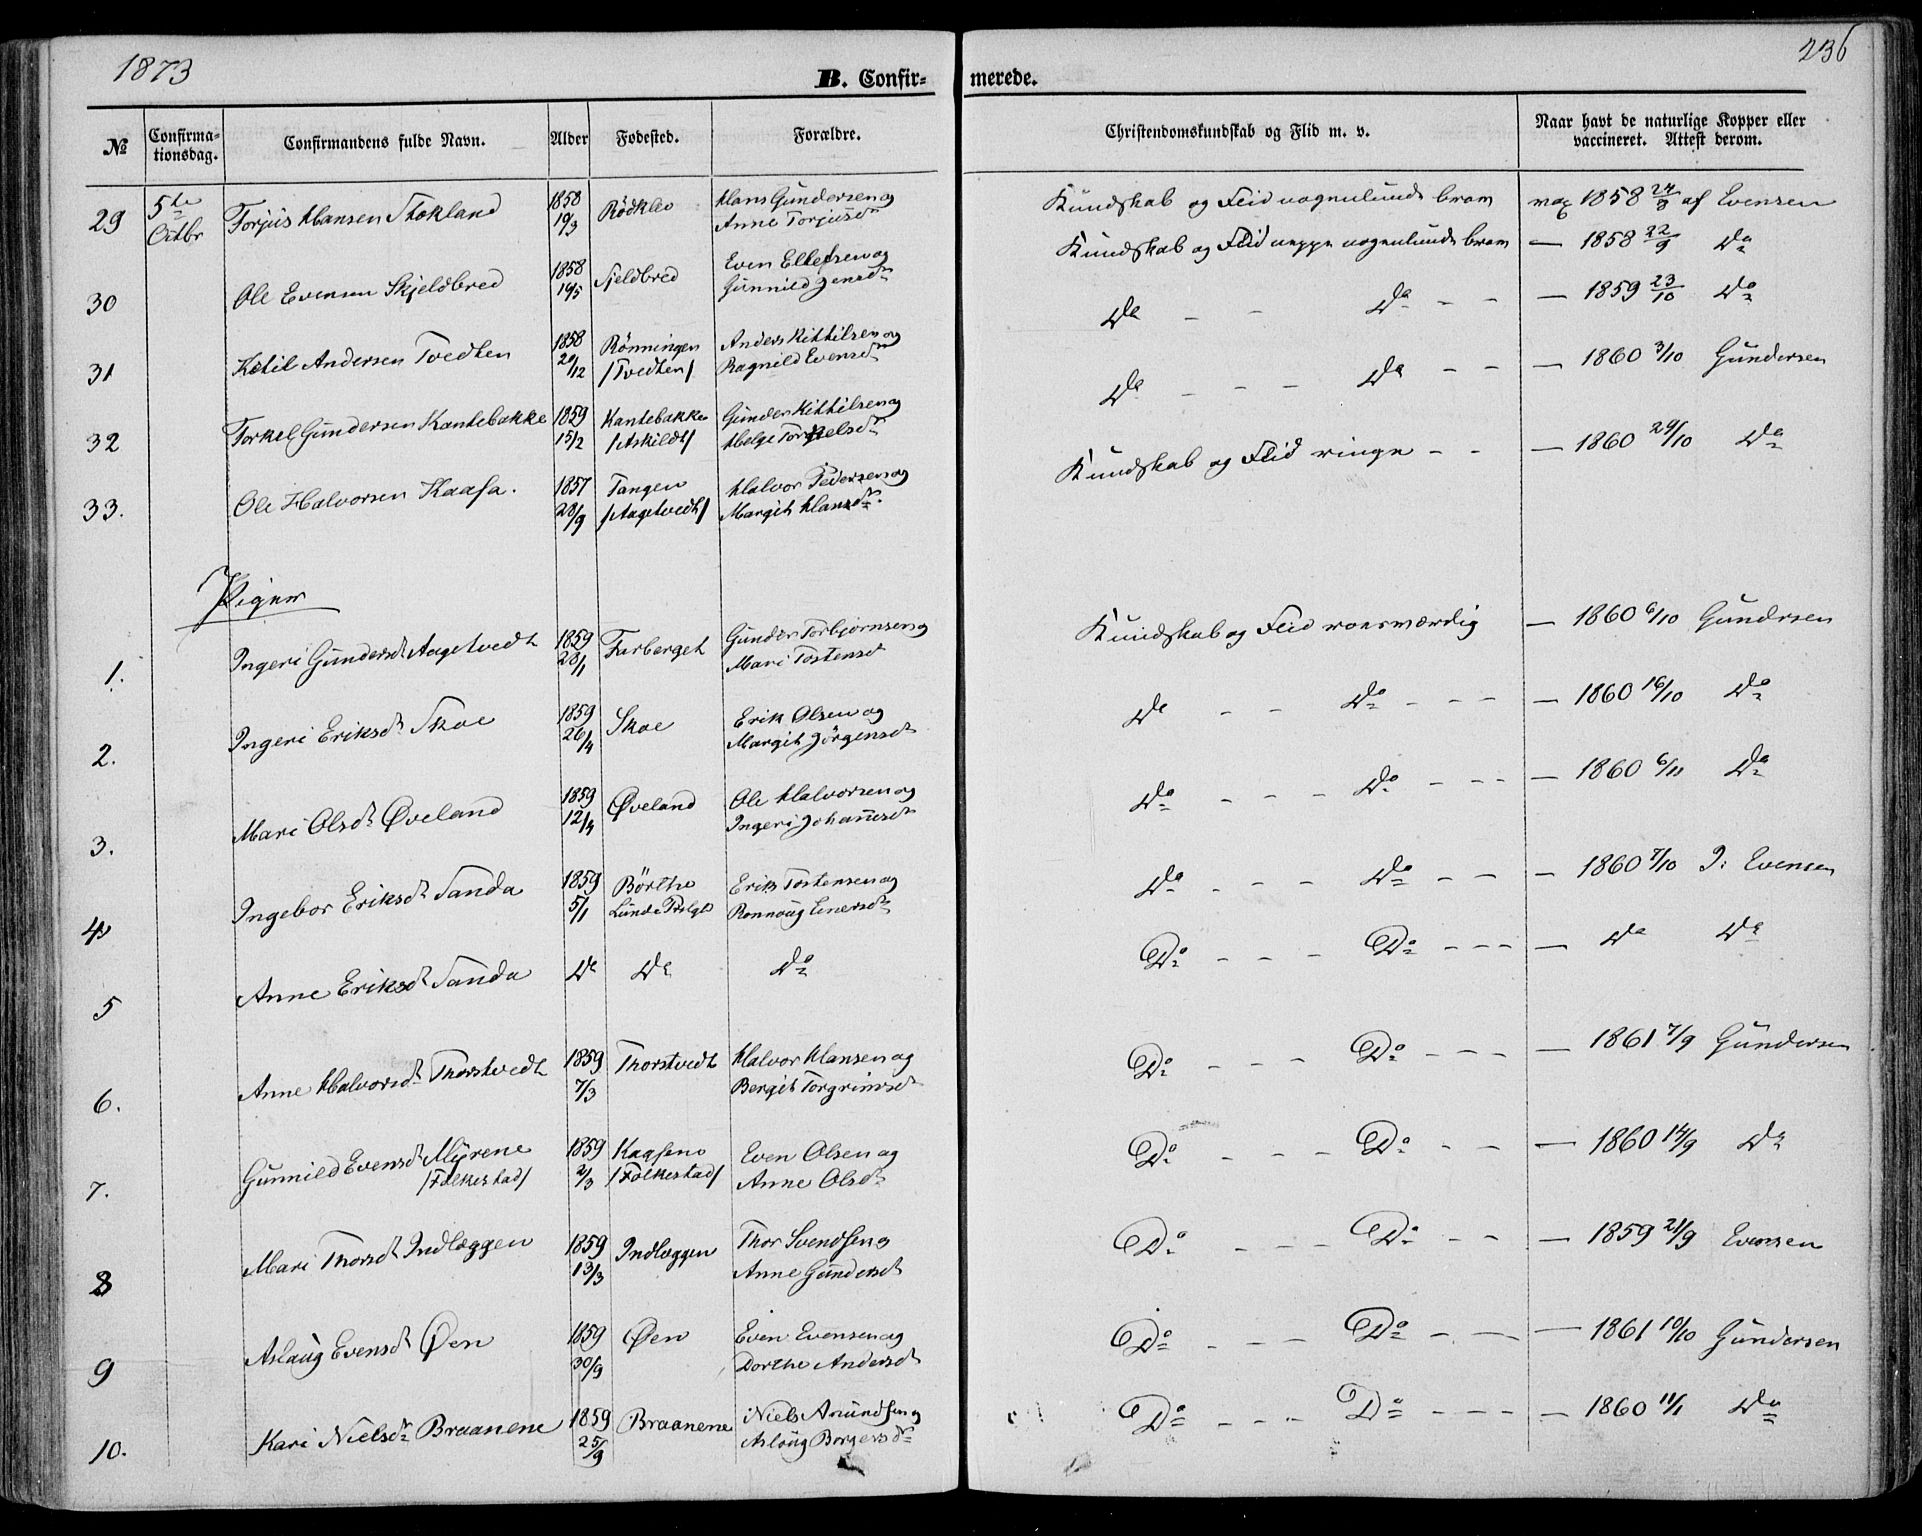 1873
236
B. Confir-merede.
№ Confirma-tionsdag. Confirmandens fulde Navn. Alder Fødested. Forældre. Christendomskundskab og Flid m. v. Naar havt de naturlige Kopper eller vaccineret. Attest derom.
29 5te Octbr Torjus Hansen Stokland 1858 19/3 Rödklev Hans Gundersen og Anne Torjusdr Kundskab og Flid nogenlunde bram vac 1858 24/8 af Evensen
30 Ole Evensen Skjeldbred 1858 19/5 Sjeldbred Even Ellefsen og Gunnild Jensdr Kundskab og Flid neppe nogenlunde bram — 1858 22/9 Do
31 Ketil Andersen Tvedten 1858 20/12 Rönningen /Tvedten/ Anders Kittilsen og Ragnild Evensdr Do - - Do - - — 1859 23/10 Do
32 Torkel Gundersen Kantebakke 1859 15/2 Kantebakke /Askildt/ Gunder Kittilsen og Helge Torkelsdr Do - - - Do - - — 1860 3/10 Gundersen
33. Ole Halvorsen Kaasa. 1857 28/9 Tangen /Aagetvedt/ Halvor Pedersen og Margit Hansdr. Kundskab og Flid ringe - - — 1860 29/10 Do
Piger
1. Ingeri Gundersdr Aagetvedt 1859 28/1 Furberget Gunder Torbjørnsen og Mari Tostensdr Kundskab og Flid roesværdig — 1860 6/10 Gundrsen
2. Ingeri Eriksdr Skoe 1859 26/4 Skoe Erik Olsen og Margit Jörgensdr Do - - - Do - - - — 1860 16/10 Do
3. Mari Olsdr Øveland 1859 12/4 Øveland Ole Halvorsen og Ingeri Johannesdr Do - - - Do - - - — 1860 6/11 Do
4 Ingebor Eriksdr Sanda 1859 5/1 Börthe Lunde Prslgd Erik Tostensen og Ronnoug Einersdr Do - - - Do - - - — 1860 7/10 J: Evensen
5 Anne Eriksdr Sanda Do Do Do Do - - - Do - - - — Do Do
6. Anne Halvorsdr Thorstvedt 1859 7/3 Thorstvedt Halvor Hansen og Bergit Torgrimsdr Do - - - Do - - - — 1861 7/9 Gundersen
7. Gunnild Evensdr Myrene /Folkestad/ 1859 2/3 Kaasene /Folkestad/ Even Olsen og Anne Olsdr Do - - - Do - - - — 1860 14/9 Do
8 Mari Thorsdr Indlæggen 1859 13/3 Indlæggen Thor Svendsen og Anne Gundersdr Do - - - Do - - — 1859 21/9 Evensen
9 Aslaug Evensdr Øen 1859 30/9 Øen Even Evensen og Dorthe Andersdr Do - - - Do - - — 1861 10/10 Gundersen
10. Kari Nielsdr Braanene 1859 25/9 Braanene Niels Amundsen og Aslaug Borgersdr Do - - - Do - - - — 1860 11/1 Do